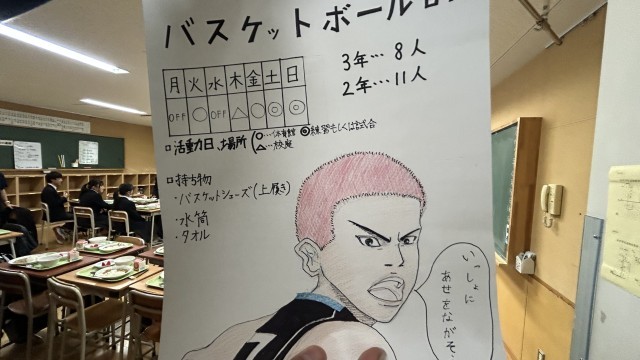 バスケットボール
3年…8人
2年…11人
月 火 水 木 金 土 日
OFF ○ OFF △ ○ ◎ ◎
□活動日、場所(○…体育館 ◎練習もしくは試合
△…校庭
□持ち物
・バスケットシューズ(上履き)
・水筒
・タオル
いっしょに
あせをながそ